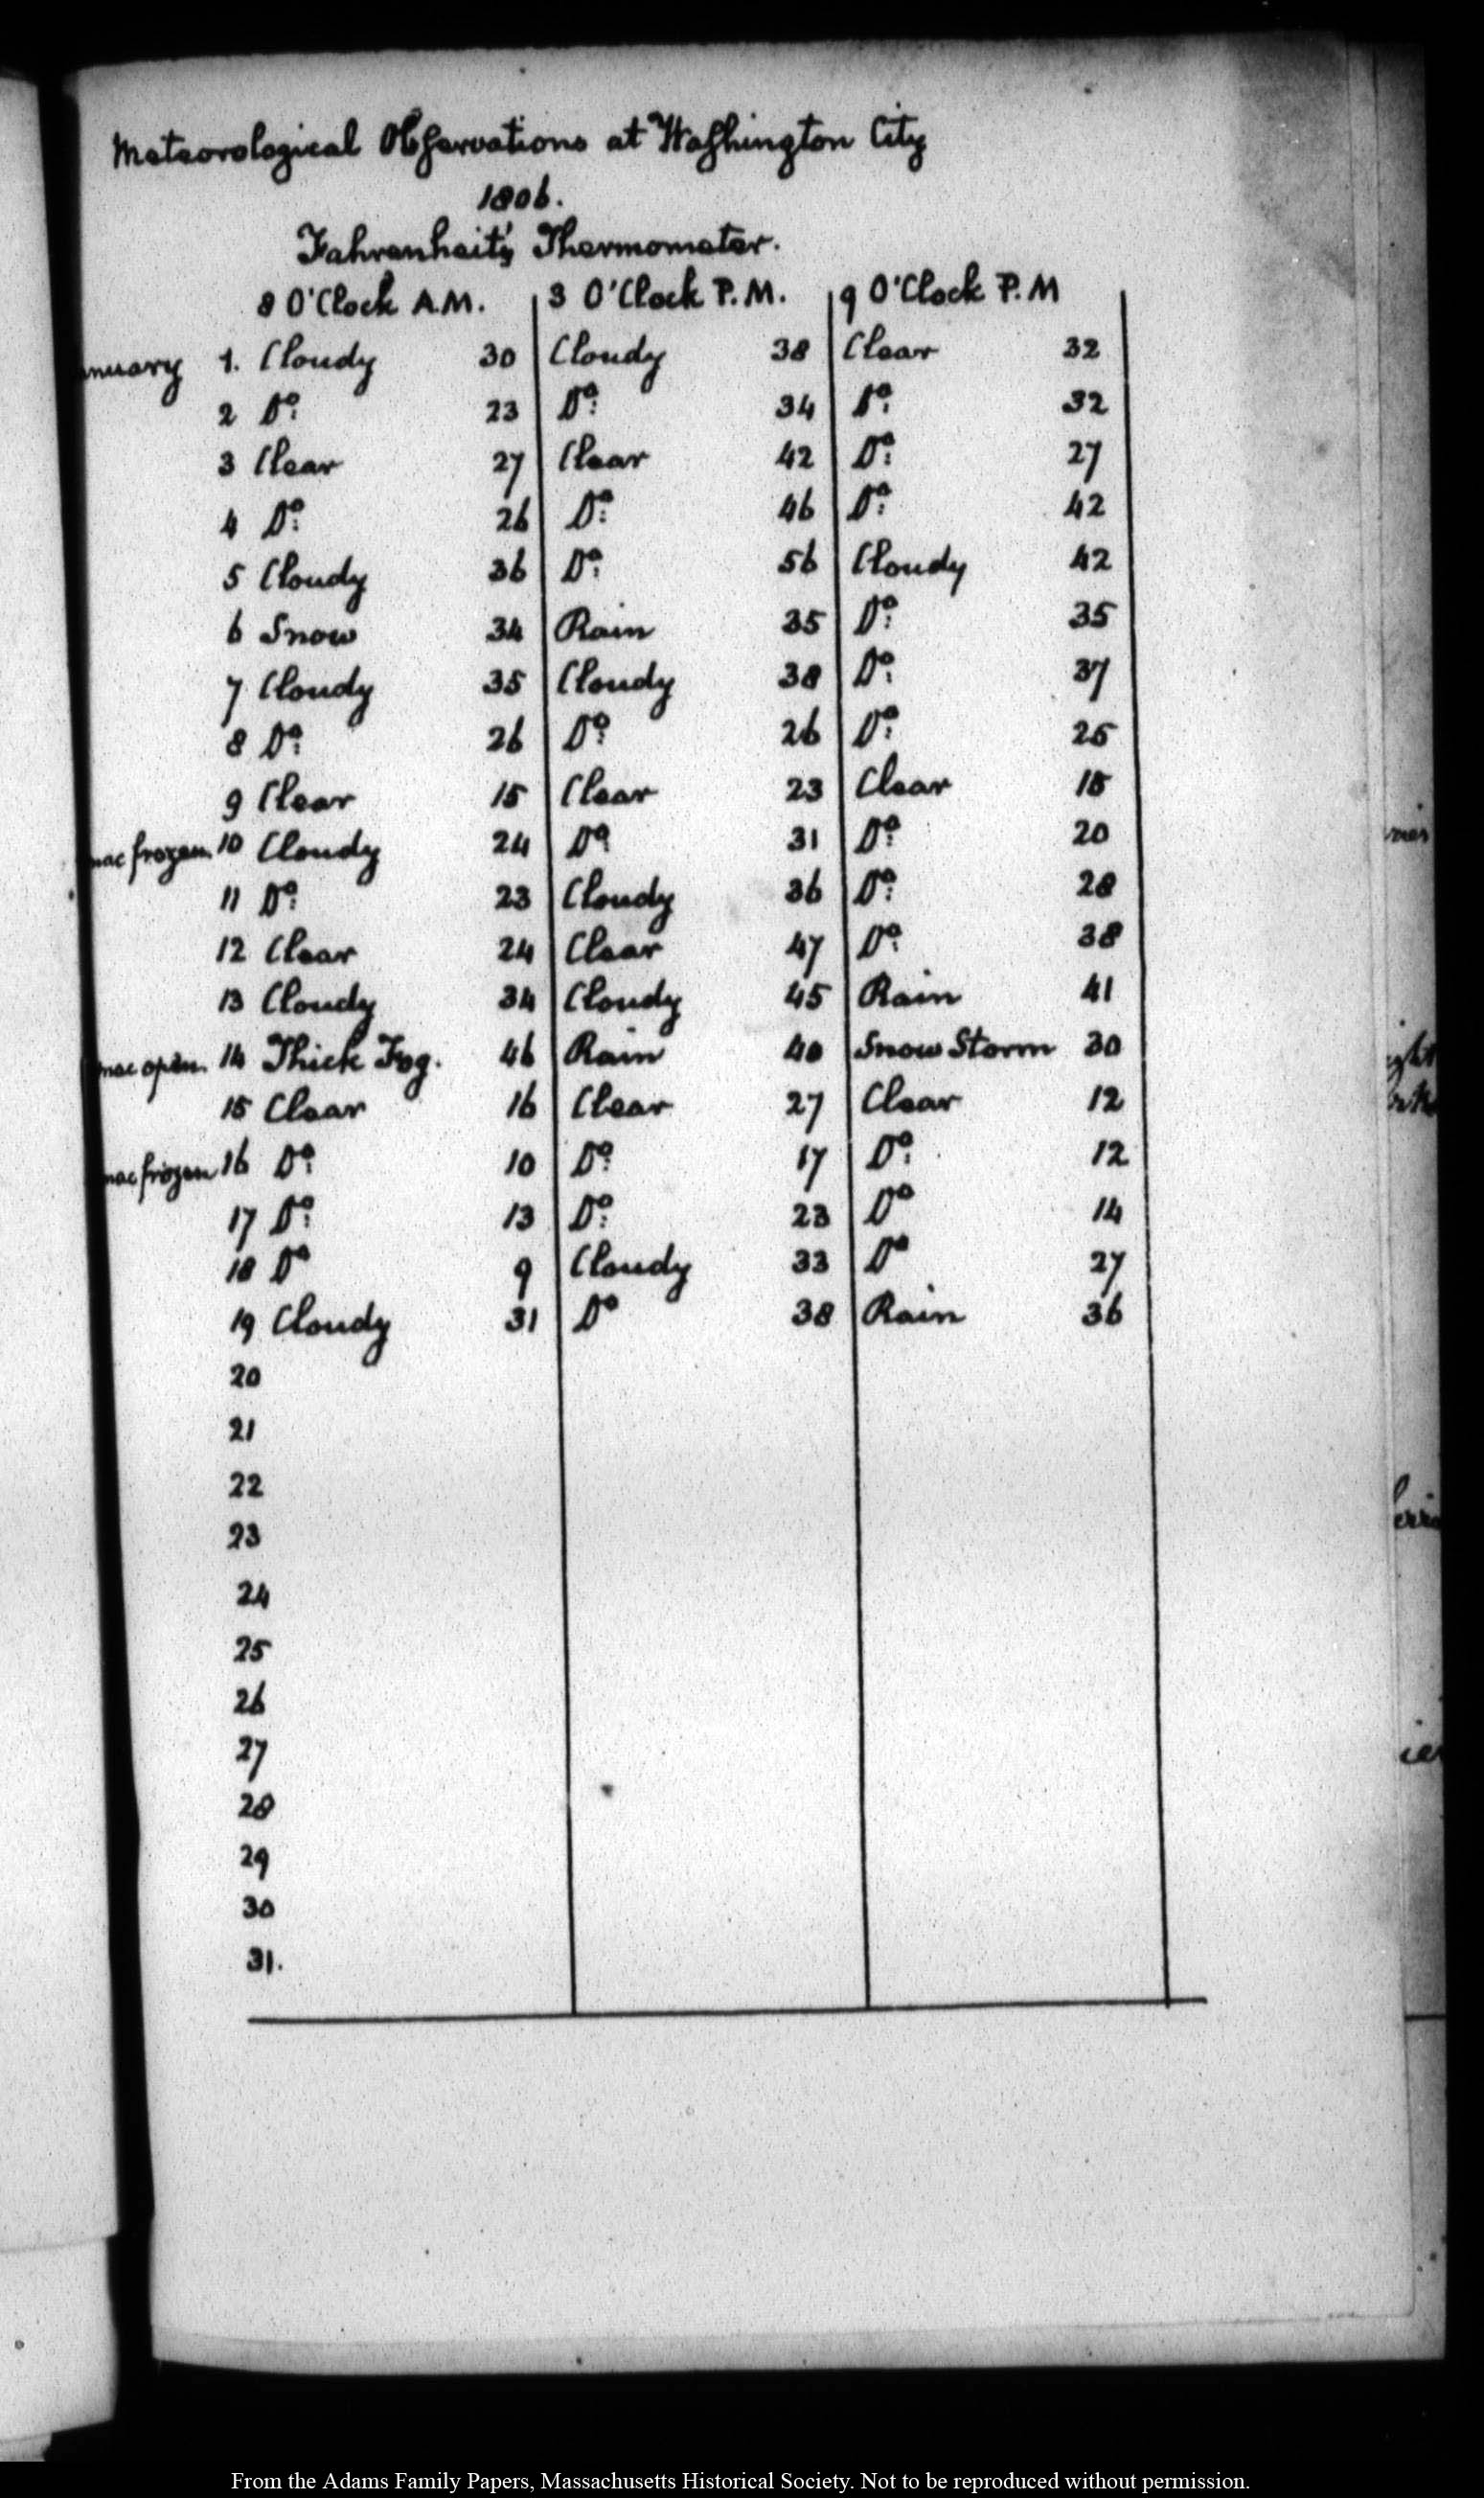 Meteorological Observations at Washington City
1806.
Fahrenheit's Thermometer.
8 O'Clock A.M. 3 O'Clock P.M. 9 O'Clock P.M
anuary 1. Cloudy 30 Cloudy 38 Clear 32
2 Do: 23 Do: 34 Do: 32
3 Clear 27 Clear 42 Do: 27
4 Do: 26 Do: 46 Do: 42
5 Cloudy 36 Do: 56 Cloudy 42
6 Snow 34 Rain 35 Do: 35
7 Cloudy 35 Cloudy 38 Do: 37
8 Do: 26 Do: 26 Do: 25
9 Clear 15 Clear 23 Clear 15
mac frozen. 10 Cloudy 24 Do 31 Do: 20
11 Do: 23 Cloudy 36 Do: 28
12 Clear 24 Clear 47 Do: 38
13 Cloudy 34 Cloudy 45 Rain 41
mac open. 14 Thick Fog. 46 Rain 40 Snow Storm 30
15 Clear 16 Clear 27 Clear 12
mac frozen 16 Do: 10 Do: 17 Do: 12
17 Do: 13 Do: 23 Do 14
18 Do 9 Cloudy 33 Do 27
19 Cloudy 31 Do 38 Rain 36
20
21
22
23
24
25
26
27
28
29
30
31.
From the Adams Family Papers, Massachusetts Historical Society. Not to be reproduced without permission.